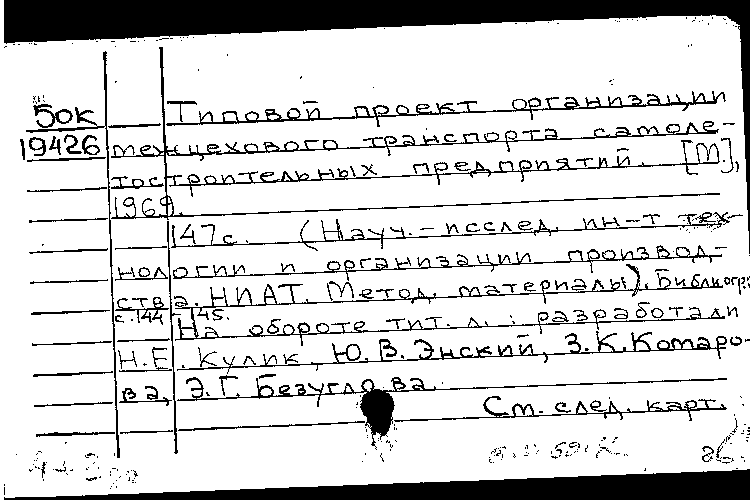 50к Типовой проект организации
19426 межцехового транспорта самоле-
тостроительных предприятий. [М.],
1969.
147с. (Науч.-исслед. ин-т тех-
нологии и организации производ-
ства. НИАТ. Метод. материалы). Библиогр:
с. 144-145.
На обороте тит. л.: разработали
Н.Е. Кулик, Ю.В. Энский, З.К. Комаро-
ва, Э.Г. Безуглова.
См. след. карт.